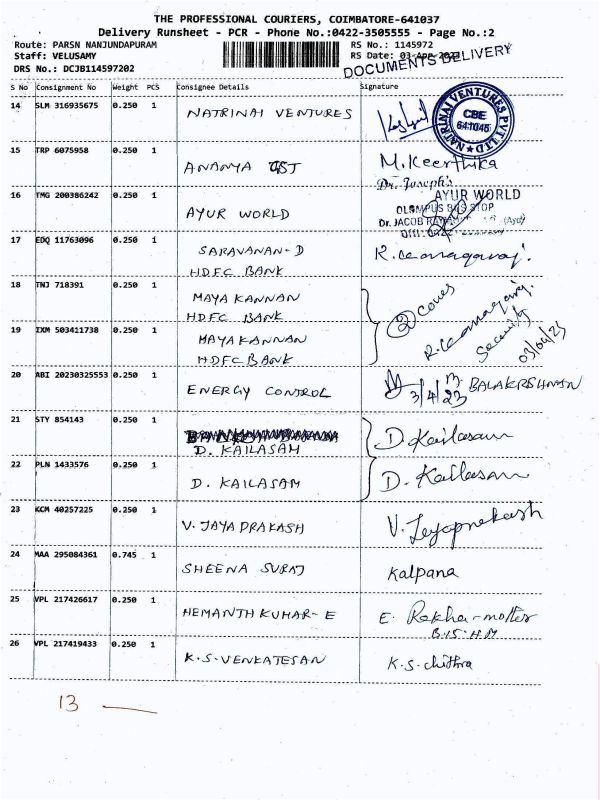 THE PROFESSIONAL COURIERS, COIMBATORE-641037
Delivery Runsheet - PCR - Phone No.:0422-3505555 - Page No.:2
Route: PARSN NANJUNDAPURAM
RS No.: 1145972
Staff: VELUSAMY
RS Date: 03-Apr-2023
DRS No.: DCJB114597202
DOCUMENTS DELIVERY
S No Consignment No Weight PCS Consignee Details Signature
14 SLM 316935675 0.250 1 NATRINAI VENTURES
NATRINAI VENTURES PVT LTD
CBE
641045
15 TRP 6075958 0.250 1 ANANYA GST M.Keerthika
Dr. Joseph's
16 TMG 200386242 0.250 1 AYUR WORLD AYUR WORLD
OLAMPUS BUS STOP
Dr. JACOB
17 EDQ 11763096 0.250 1 SARAVANAN-D
HDFC BANK
18 TNJ 718391 0.250 1 MAYA KANNAN
HDFC BANK
2 cours
19 IXM 503411738 0.250 1 MAYA KANNAN
HDFC BANK
Security
03/04/23
20 ABI 20230325553 0.250 1 ENERGY CONTROL 3/4/23 BALAKRISHNAN
21 STY 854143 0.250 1 D. KAILASAM D. Kailasam
22 PLN 1433576 0.250 1 D. KAILASAM D. Kailasam
23 KCM 40257225 0.250 1 V. JAYA PRAKASH V. Jeyaprakash
24 MAA 295084361 0.745 1 SHEENA SURAJ Kalpana
25 VPL 217426617 0.250 1 HEMANTH KUMAR- E E. Rekha-mother
26 VPL 217419433 0.250 1 K.S-VENKATESAN K.S.chithra
13 —